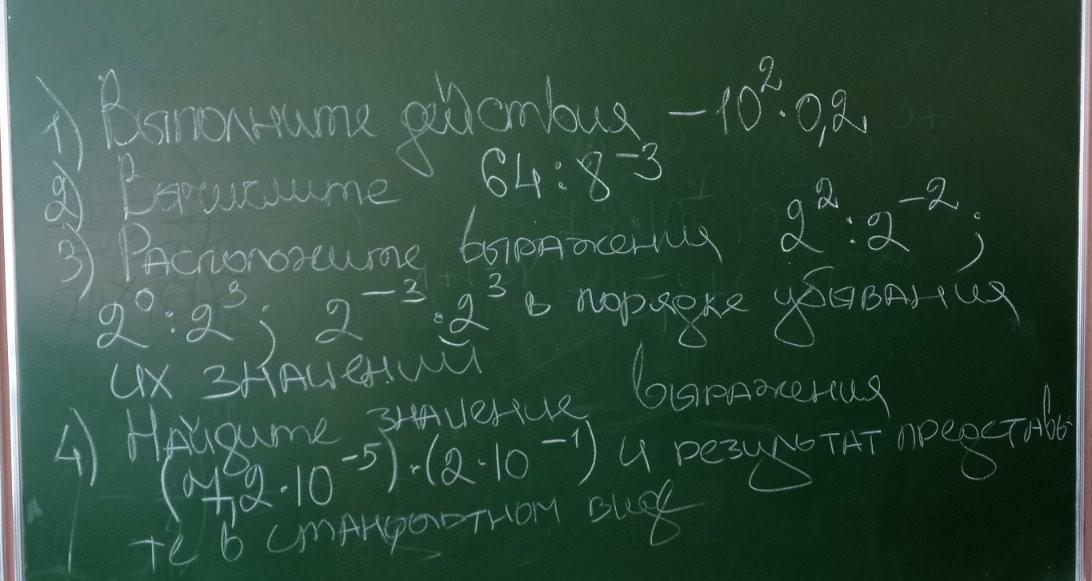 1) Выполните действия −10²·0,2
2) Вычислите 64:8⁻³
3) Расположите выражения 2²:2⁻²;
2⁰:2³; 2⁻³:2³ в порядке убывания
их значений
4) Найдите значение выражения
(7,2·10⁻⁵)·(2·10⁻¹) и результат представь-
те в стандартном виде